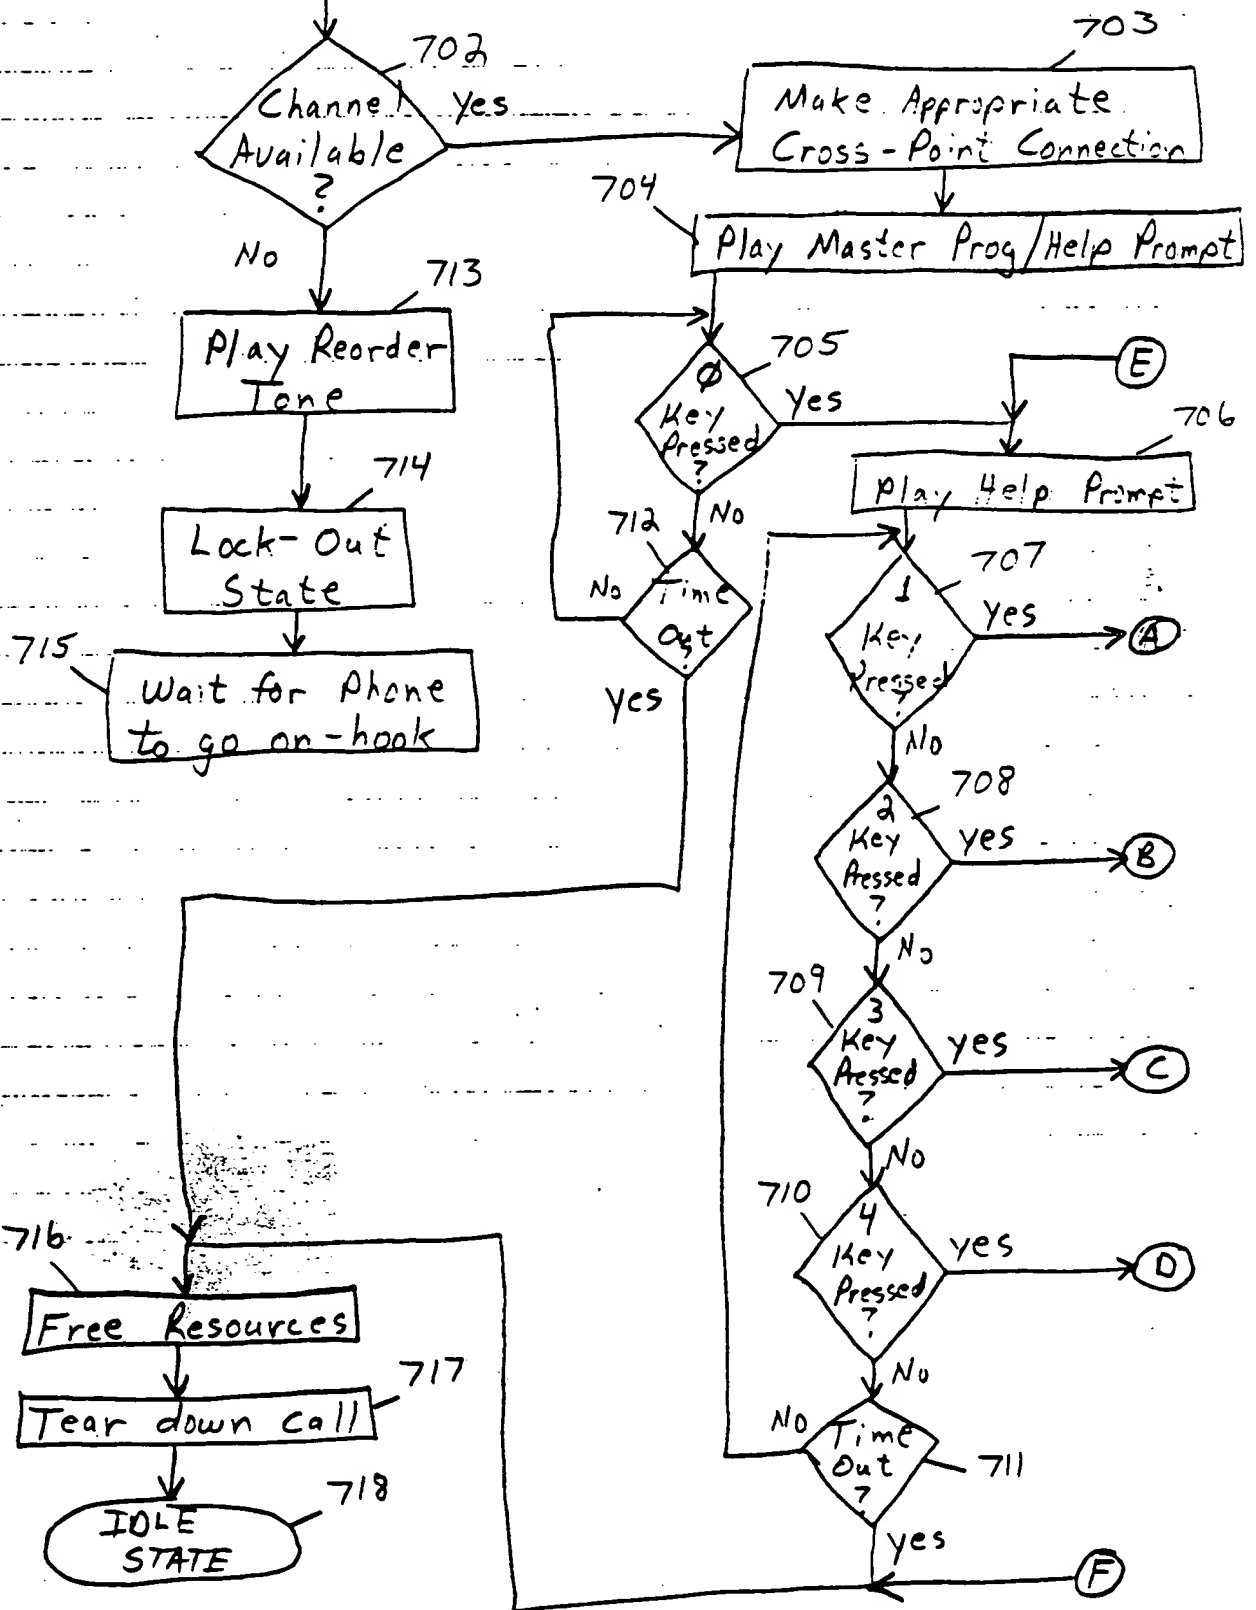 702
Channel
Available
?
Yes
No
703
Make Appropriate
Cross-Point Connection
704
Play Master Prog/Help Prompt
713
Play Reorder
Tone
714
Lock-Out
State
715
Wait for Phone
to go on-hook
705
Ø
Key
Pressed
?
Yes
No
E
706
Play Help Prompt
712
Time
Out
?
No
Yes
707
1
Key
Pressed
?
Yes
A
No
708
2
Key
Pressed
?
Yes
B
No
709
3
Key
Pressed
?
Yes
C
No
710
4
Key
Pressed
?
Yes
D
No
711
Time
Out
?
No
Yes
F
716
Free Resources
717
Tear down call
718
IDLE
STATE